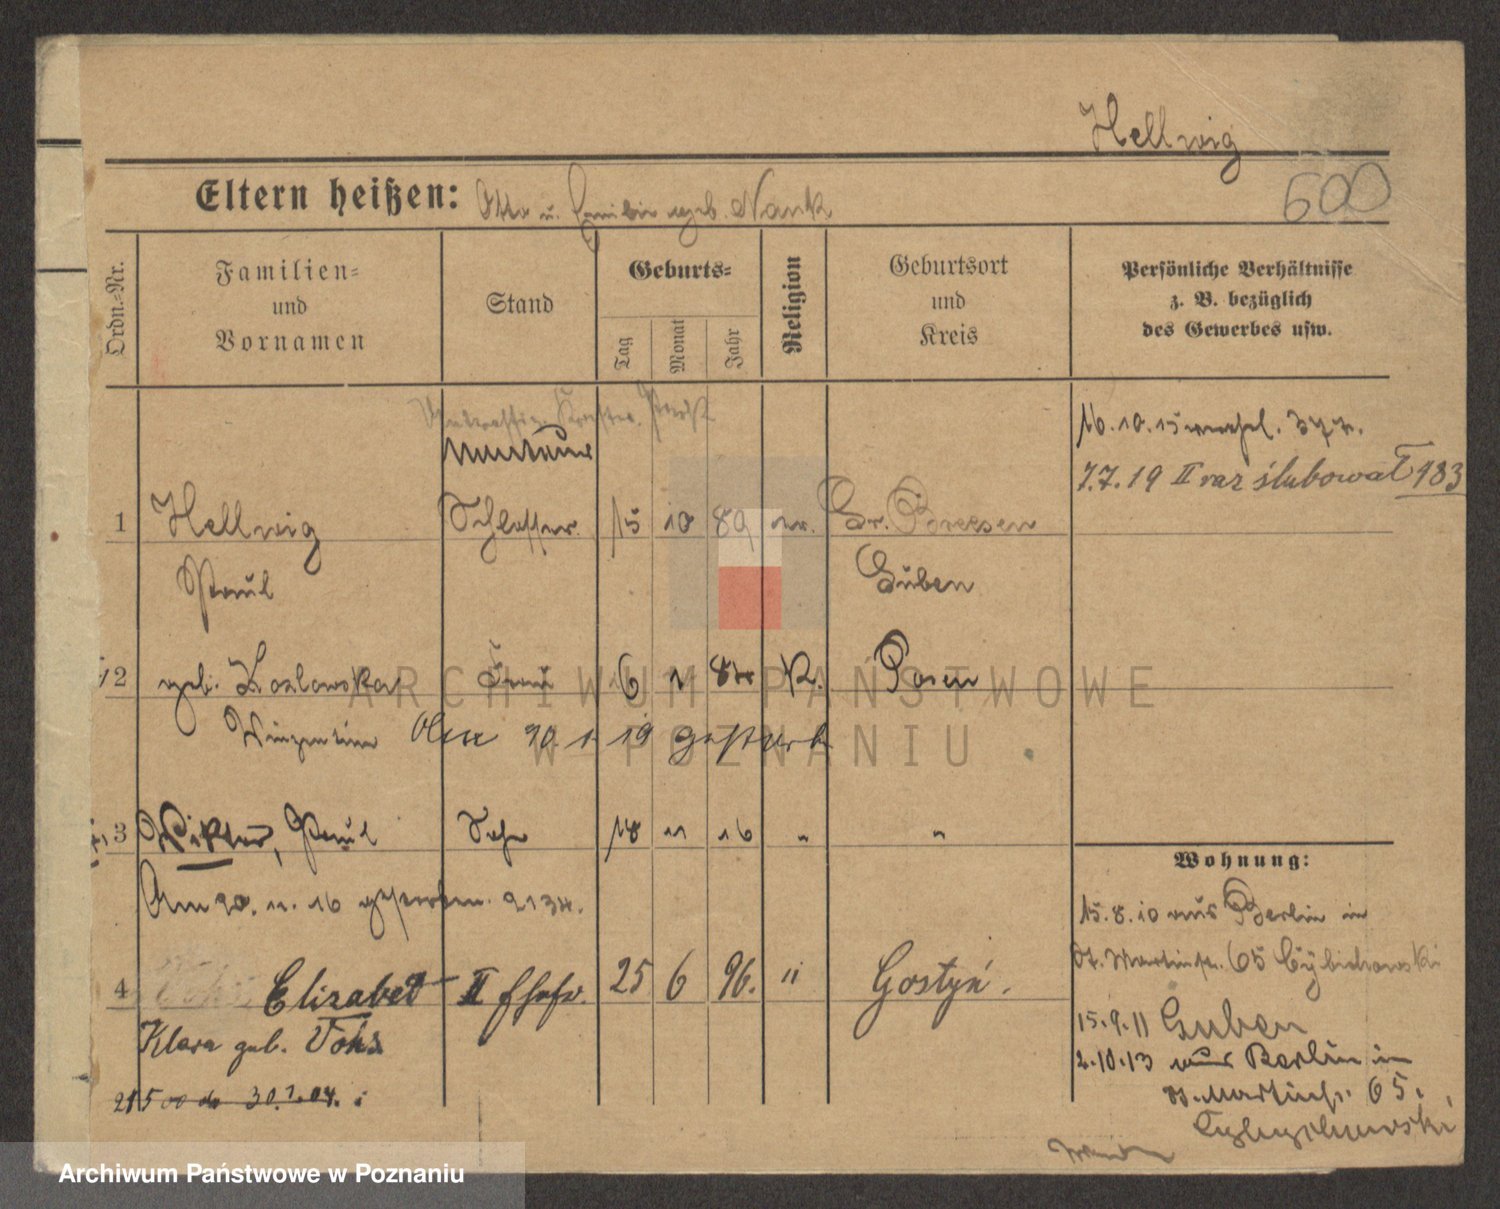 Hellwig
600
Eltern heißen: Otto u. Emilie geb. Nank
Ordn.=Nr.
Familien= und Vornamen
Stand
Geburts=
Tag
Monat
Jahr
Religion
Geburtsort und Kreis
Persönliche Verhältnisse
z. B. bezüglich
des Gewerbes usw.
Monteur
7.7.19 II raz ślubował 483
1 Hellwig Schlosser 15 10 89 ev. Gr. Breesen
Paul Guben
2 geb. Kozlowska Frau 6 1 K. Posen
30 1. 19
3 Wiktor, Paul Sohn 18 11 16 " "
Am 20. 11. 16 gestorben. 2134.
4 Elizabet II 25 6 96. " Gostyń.
Klara geb. Tohs
30.1.04.
Wohnung:
15.8.10 aus Berlin in
St. Martinstr. 65 Cybichowski
15.9.11 Guben
2.10.13 aus Berlin in
St. Martinstr. 65.
ARCHIWUM PAŃSTWOWE
W POZNANIU
Archiwum Państwowe w Poznaniu